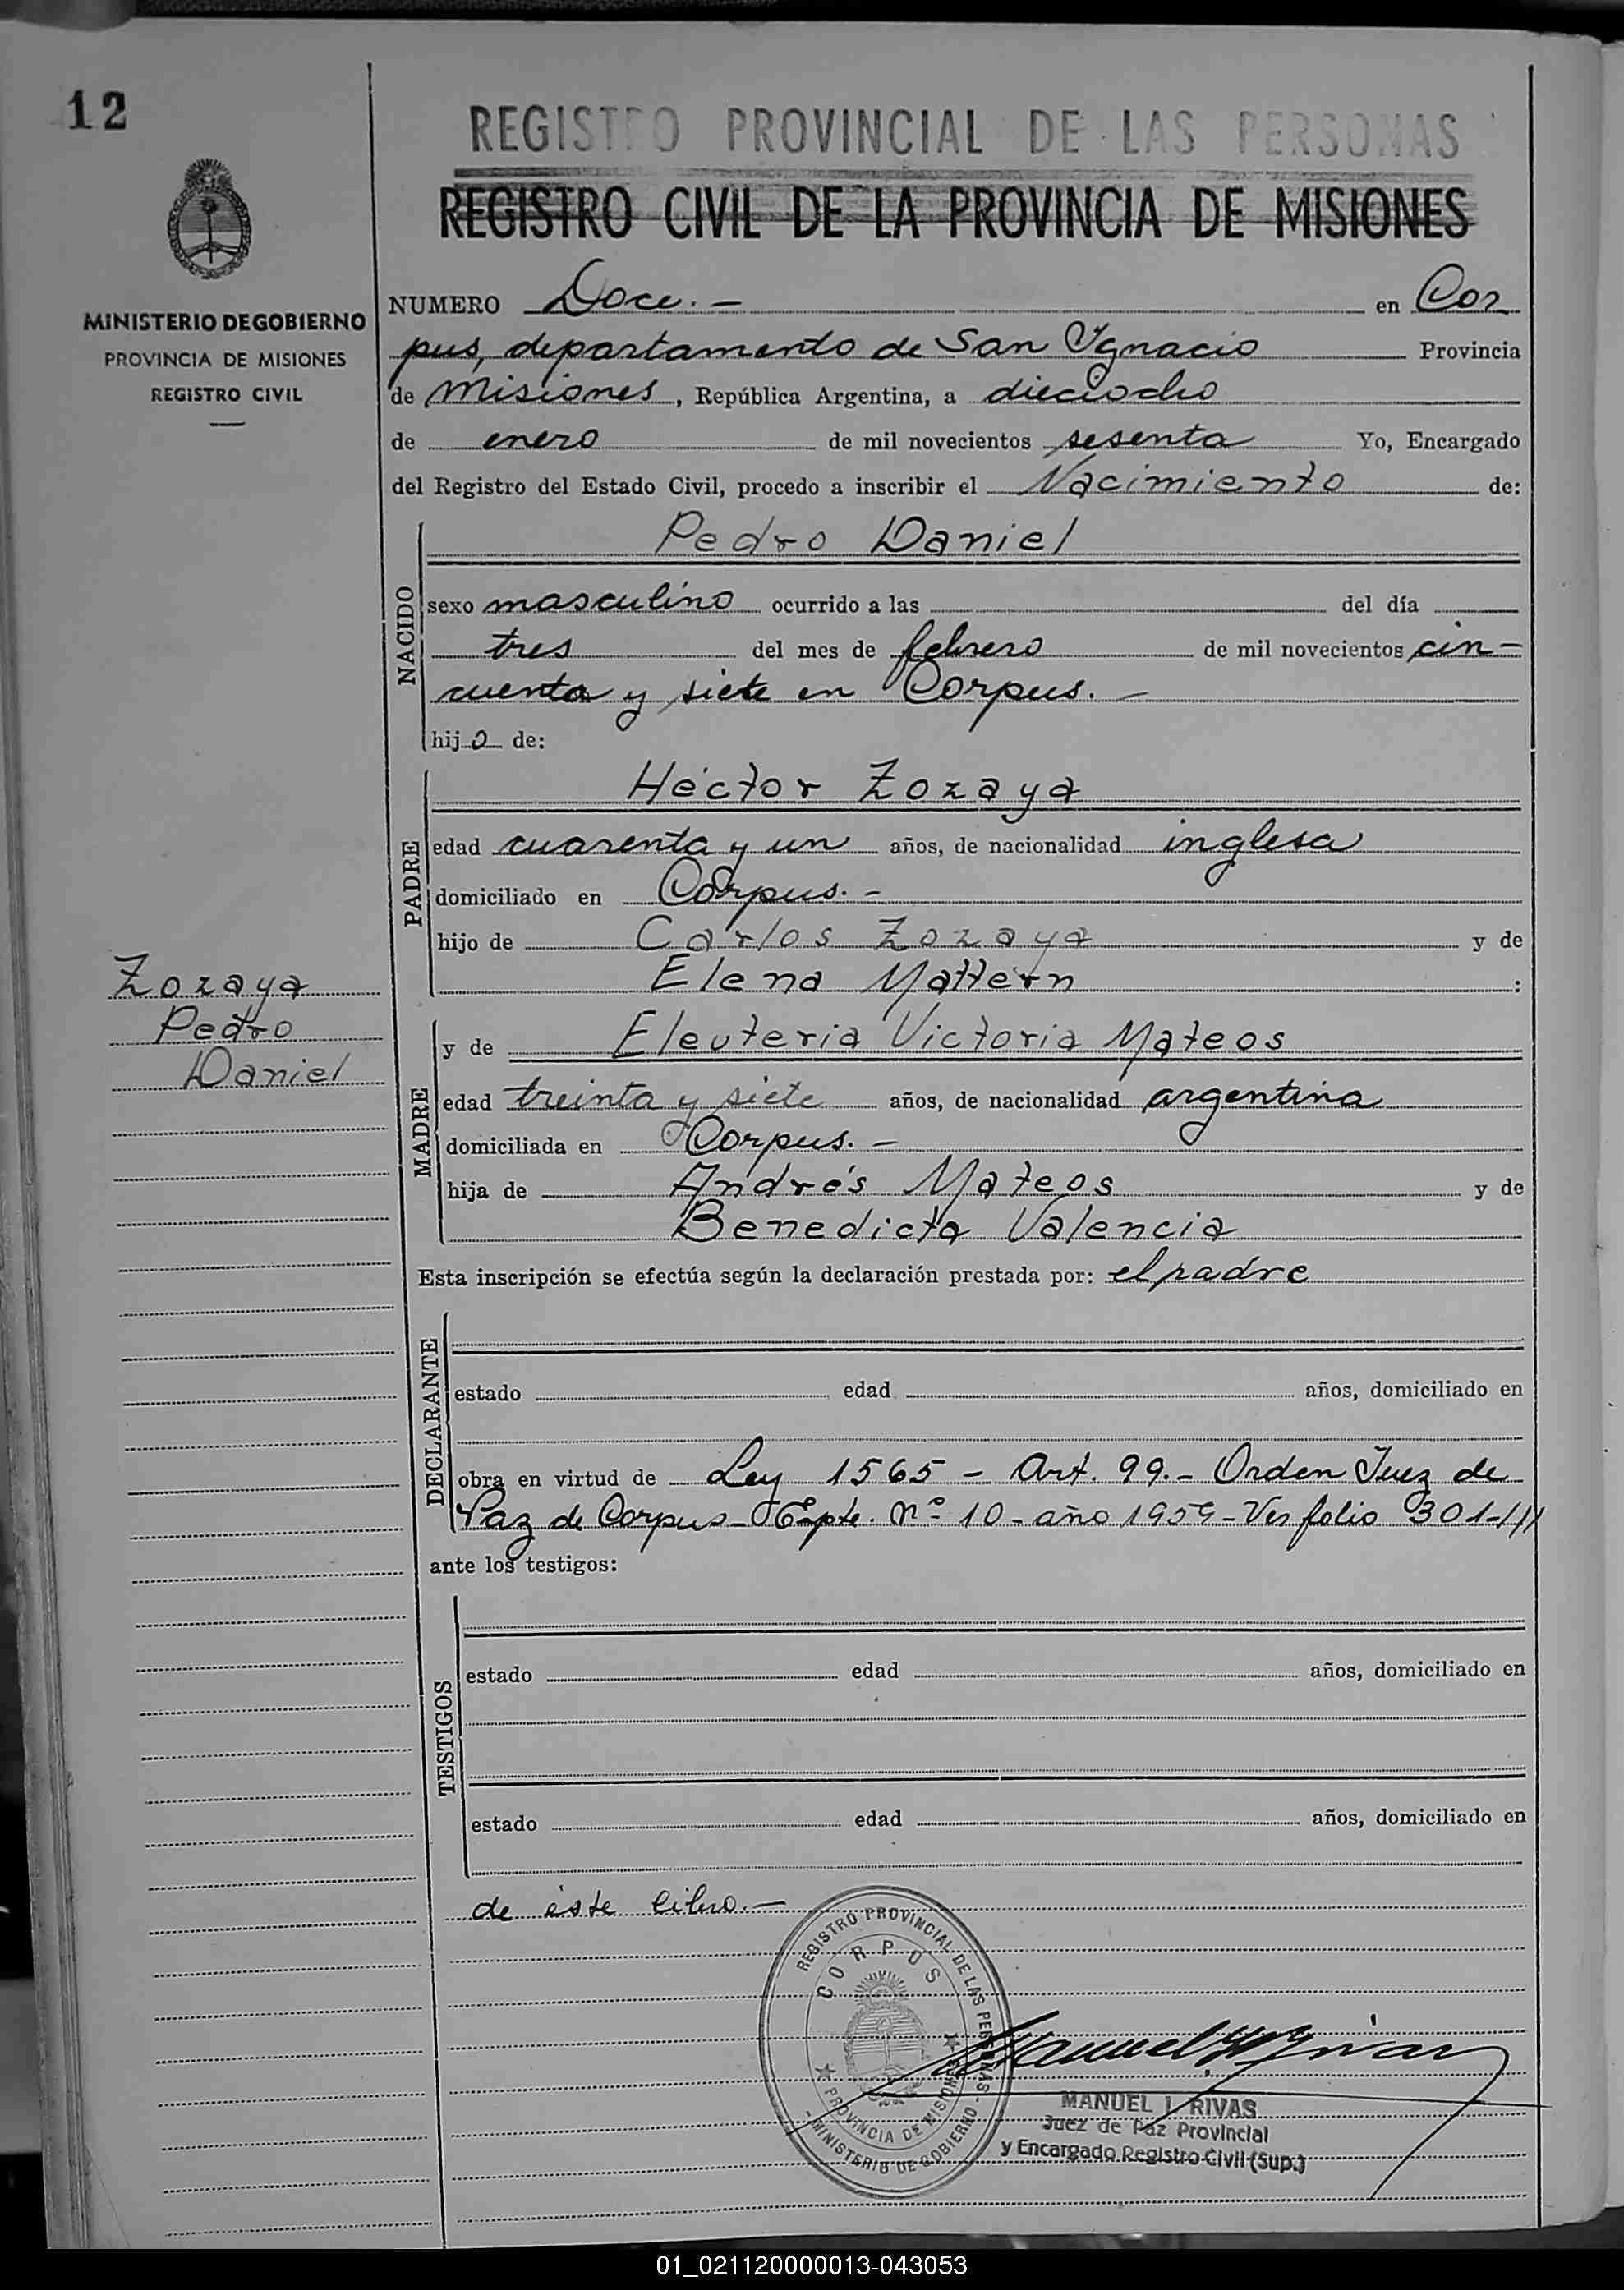 12
REGISTRO PROVINCIAL DE LAS PERSONAS
REGISTRO CIVIL DE LA PROVINCIA DE MISIONES
MINISTERIO DE GOBIERNO
PROVINCIA DE MISIONES
REGISTRO CIVIL
NUMERO Doce.- en Cor
pus, departamento de San Ygnacio Provincia
de Misiones, República Argentina, a dieciocho
de enero de mil novecientos sesenta Yo, Encargado
del Registro del Estado Civil, procedo a inscribir el Nacimiento de:
NACIDO
Pedro Daniel
sexo masculino ocurrido a las del día
tres del mes de febrero de mil novecientos cin-
cuenta y siete en Corpus.-
hijo de:
PADRE
Héctor Zozaya
edad cuarenta y un años, de nacionalidad inglesa
domiciliado en Corpus.-
hijo de Carlos Zozaya y de
Elena Mattern :
Zozaya
Pedro
Daniel
MADRE
y de Eleuteria Victoria Mateos
edad treinta y siete años, de nacionalidad argentina
domiciliada en Corpus.-
hija de Andrés Mateos y de
Benedicta Valencia
Esta inscripción se efectúa según la declaración prestada por: el padre
DECLARANTE
estado edad años, domiciliado en
obra en virtud de Ley 1565 - Art. 99.- Orden Juez de
Paz de Corpus - Expte. Nº 10 - año 1959 - Ver folio 301-///
ante los testigos:
TESTIGOS
estado edad años, domiciliado en
estado edad años, domiciliado en
de éste libro.-
REGISTRO PROVINCIAL DE LAS PERSONAS - MINISTERIO DE GOBIERNO -
CORPUS
PROVINCIA DE MISIONES
MANUEL I. RIVAS
Juez de Paz Provincial
y Encargado Registro Civil (Sup.)
01_021120000013-043053